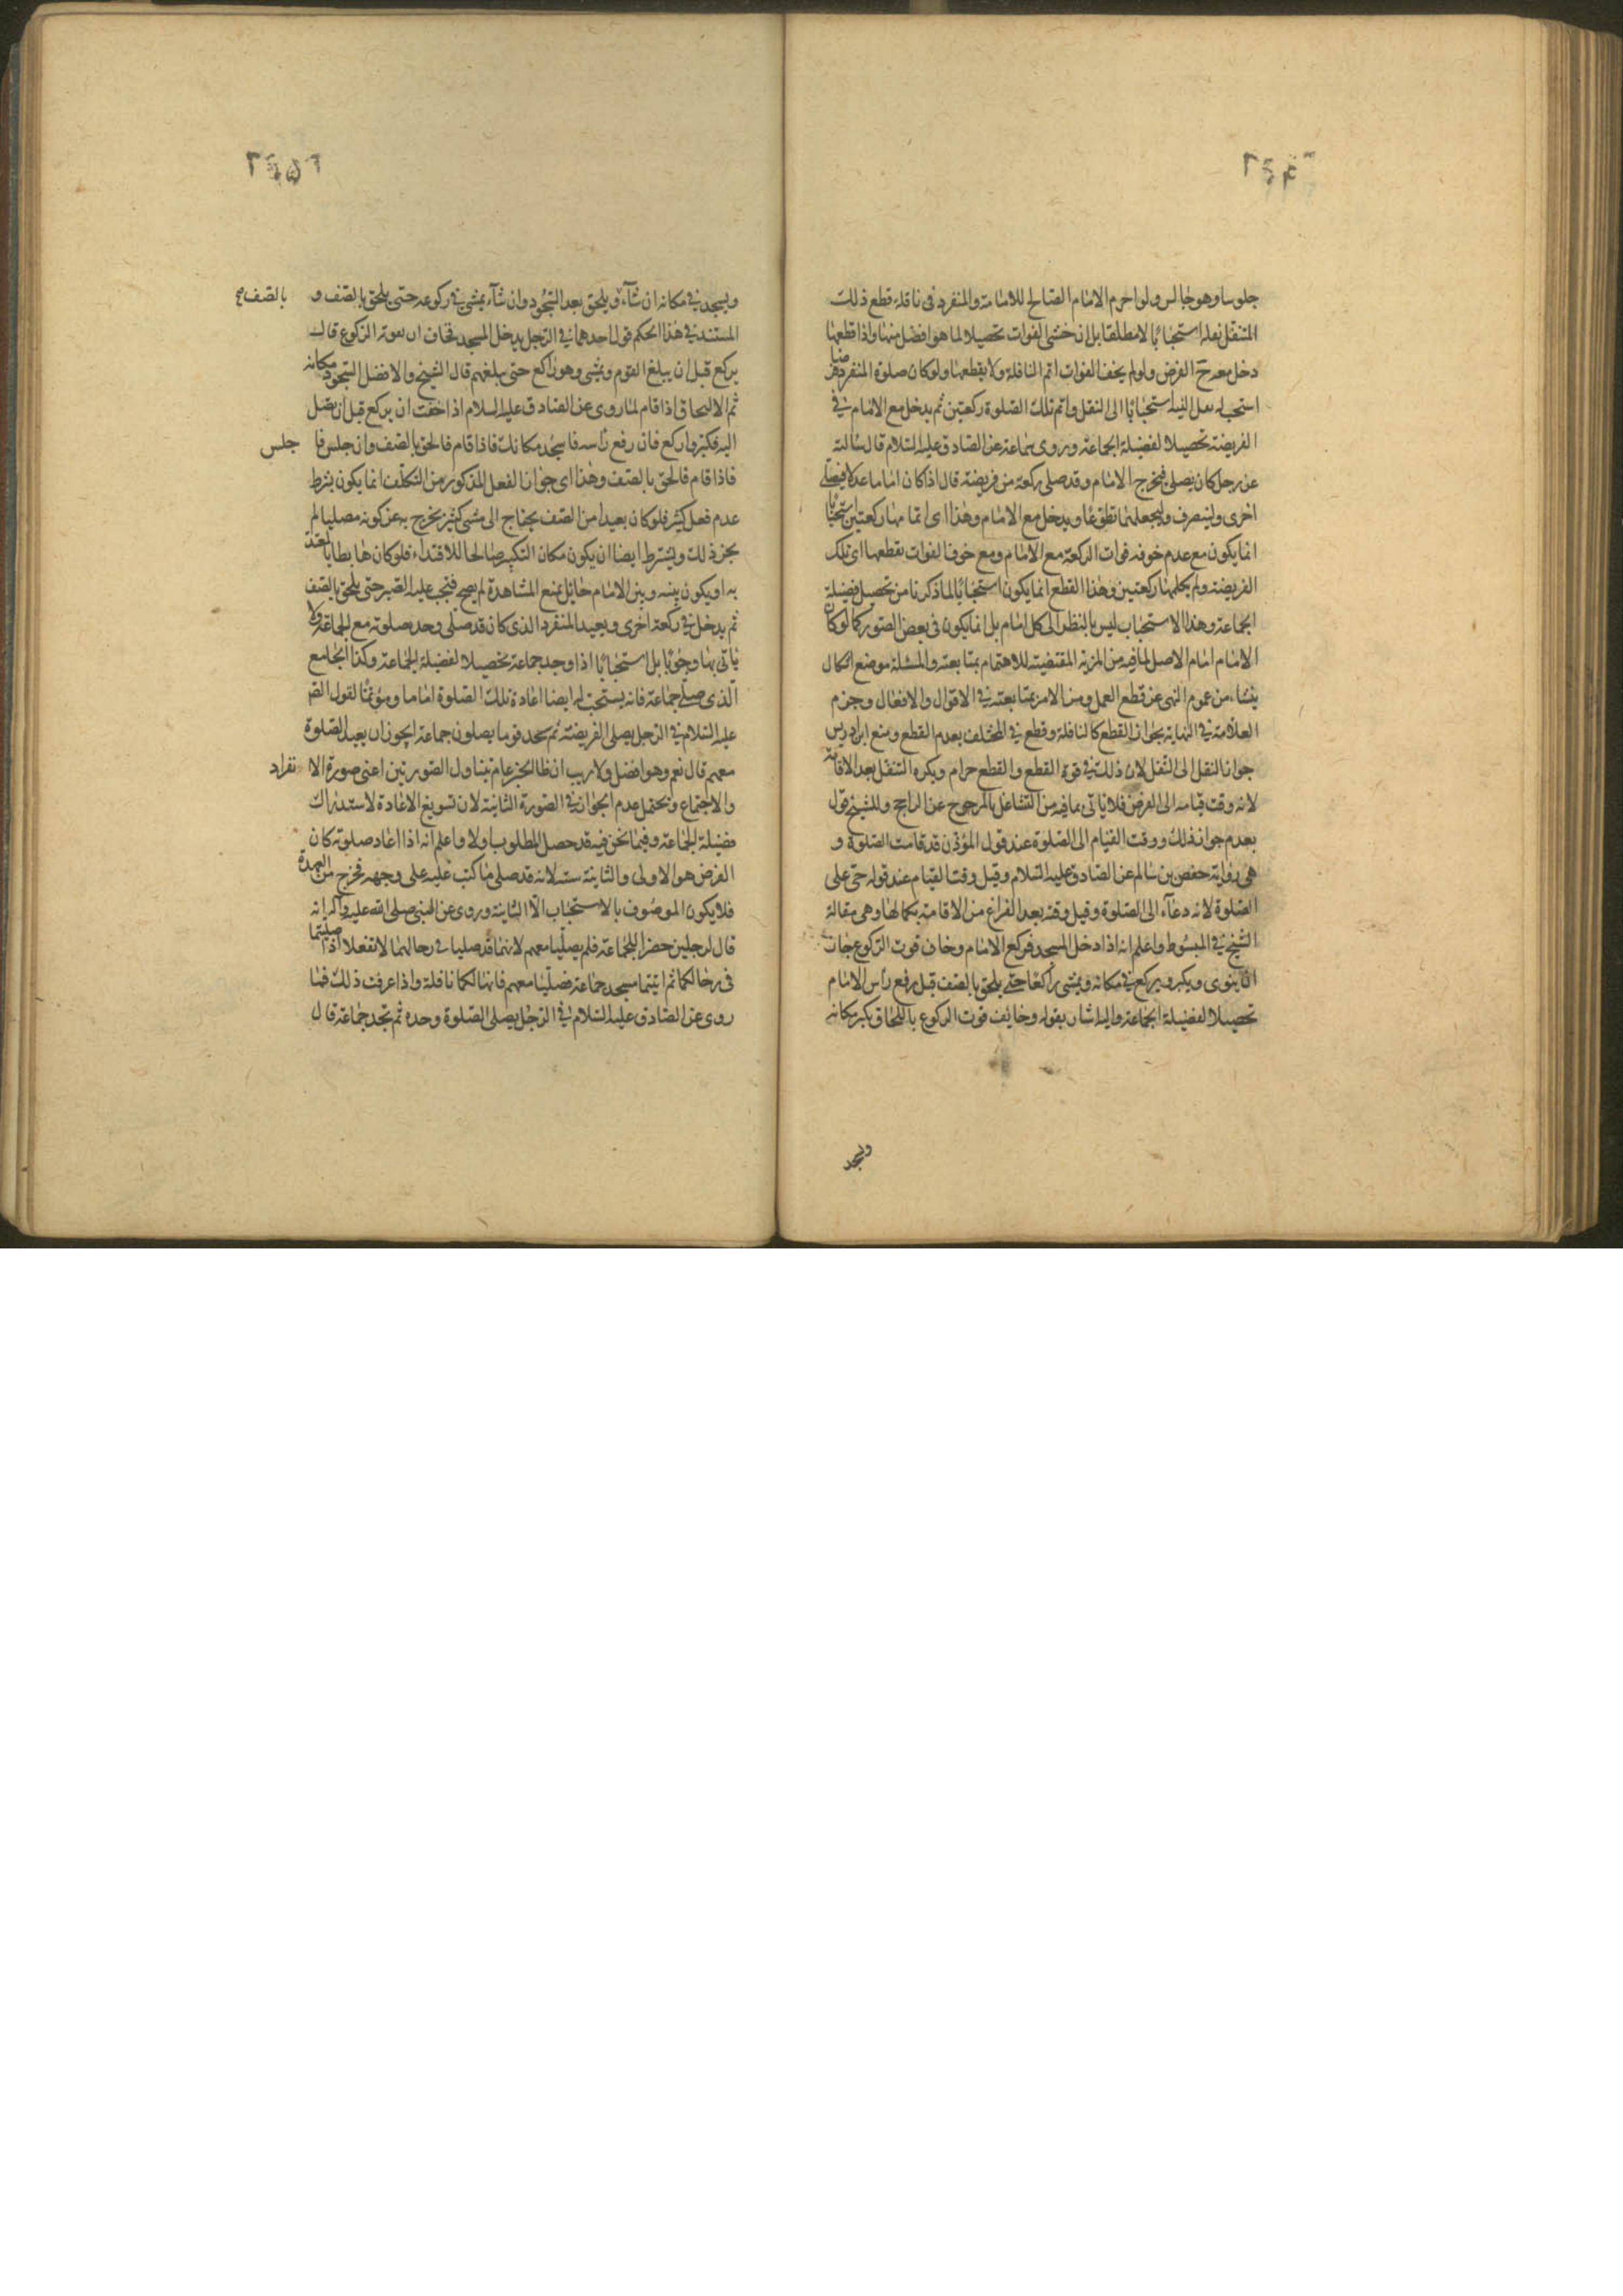 جلوسا وهو جالس ولو احرم الامام الصالح للامامة والمنفرد فى نافلة قطع ذلك
المتنفل نفله استحبابًا لا مطلقا بل ان خشى الفوات تحصيلا لما هو افضل منها واذا قطعها
دخل معه ح الفرض ولو لم يخف الفوات اتم النافلة ولا يقطعها ولو كان صلوة المنفرد فرضا
استحب له نقل النية استحبابًا الى النفل واتم تلك الصلوة ركعتين ثم يدخل مع الامام فى
الفريضة تحصيلا لفضيلة الجماعة وروى سماعة عن الصادق عليه السلام قال سالته
عن رجل كان يصلى فخرج الامام وقد صلى ركعة من فريضة قال اذا كان اماما عدلا فيصلى
اخرى ولينصرف وليجعلهما تطوعًا ويدخل مع الامام وهذا اى اتمامها ركعتين استحبابًا
انما يكون مع عدم خوفه فوات الركعة مع الامام ومع خوف الفوات يقطعها اى تلك
الفريضة ولم يجعلها ركعتين وهذا القطع انما يكون استحبابًا لما ذكرنا من تحصيل فضيلة
الجماعة وهذا الاستحباب ليس بالنظر الى كل امام بل انما يكون فى بعض الصور كما لو كان
الامام امام الاصل لما فيه من المزية المقتضية للاهتمام بمتابعته والمسئلة موضع اشكال
ينشاء من عموم النهى عن قطع العمل ومن الامر بمتابعته فى الاقوال والافعال وجزم
العلامة فى النهاية بجواز القطع كالنافلة وقطع فى المختلف بعدم القطع ومنع ابن ادريس
جواز النقل الى النفل لان ذلك فى قوة القطع والقطع حرام ويكره التنفل بعد الاقامة
لانه وقت قيامه الى الفرض فلا ياتى بما فيه من التشاغل بالمرجوح عن الراجح وللشيخ قول
بعدم جواز ذلك ووقت القيام الى الصلوة عند قول المؤذن قد قامت الصلوة و
هى رواية حفص بن سالم عن الصادق عليه السلام وقيل وقت القيام عند قوله حى على
الصلوة لانه دعآء الى الصلوة وقيل وقته بعد الفراغ من الاقامة بكمالها وهى مقالة
الشيخ فى المبسوط واعلم انه اذا دخل المسجد فركع الامام وخاف فوت الركوع جاز
ان ينوى ويكبر ويركع فى مكانه ويمشى راكعًا حتى يلحق بالصف قبل رفع رأس الامام
تحصيلا لفضيلة الجماعة واليه اشار بقوله وخايف فوت الركوع باللحاق يكبر مكانه
ويسجد
ويسجد فى مكانه ان شآء ويلحق بعد السجود وان شآء يمشى فى ركوعه حتى يلحق بالصف و
بالصف صح
المستند فى هذا الحكم قول احدهما فى الرجل يدخل المسجد فخاف ان يفوته الركوع قال
يركع قبل ان يبلغ القوم ويمشى وهو راكع حتى يبلغهم قال الشيخ والافضل السجود مكانه
ثم الالتحاق اذا قام لما روى عن الصادق عليه السلام اذا خفت ان يركع قبل ان تصل
اليه فكبر واركع فان رفع رأسه فاسجد مكانك فاذا قام فالحق بالصف وان جلس فا
جلس
فاذا قام فالحق بالصف وهذا اى جواز الفعل المذكور من التكلف انما يكون بشرط
عدم فعل كثير فلو كان بعيدا من الصف يحتاج الى مشى كثير يخرج به عن كونه مصليا لم
يجز ذلك ويشترط ايضا ان يكون مكان التكبير صالحا للاقتداء فلو كان هابطا بما يعتد
به او يكون بينه وبين الامام حايل يمنع المشاهدة لم يصح فيجب عليه الصبر حتى يلحق بالصف
ثم يدخل فى ركعة اخرى ويعيد المنفرد الذى كان قد صلى وحد صلوته مع الجماعة ولا
ياتى بها وجوبًا بل استحبابًا اذا وجد جماعة تحصيلا لفضيلة الجماعة وكذا الجامع
الذى صلى جماعة فانه يستحب له ايضا اعادة تلك الصلوة اماما ومؤتمًا لقول الص
عليه السلام فى الرجل يصلى الفريضة ثم يجد قوما يصلون جماعة ايجوز ان يعيد الصلوة
معهم قال نعم وهو افضل ولا ريب ان هذا الخبر عام يتناول الصورتين اعنى صورة الا
نفراد
والاجتماع ويحتمل عدم الجواز فى الصورة الثانية لان تسويغ الاعادة لاستدراك
فضيلة الجماعة وفيما نحن فيه قد حصل المطلوب اولا واعلم انه اذا اعاد صلوته كان
الفرض هو الاولى والثانية سنة لانه قد صلى ما كتب عليه على وجهه فخرج من العهدة
فلا يكون الموصوف بالاستحباب الا الثانية وروى عن النبى صلى الله عليه وآله انه
قال لرجلين حضرا الجماعة فلم يصليا معهم لانهما قد صليا فى رحالهما لا تفعلا اذا صليتما
فى رحالكما ثم اتيتما مسجد جماعة فصليا معهم فانها لكما نافلة واذا عرفت ذلك فما
روى عن الصادق عليه السلام فى الرجل يصلى الصلوة وحده ثم يجد جماعة قال